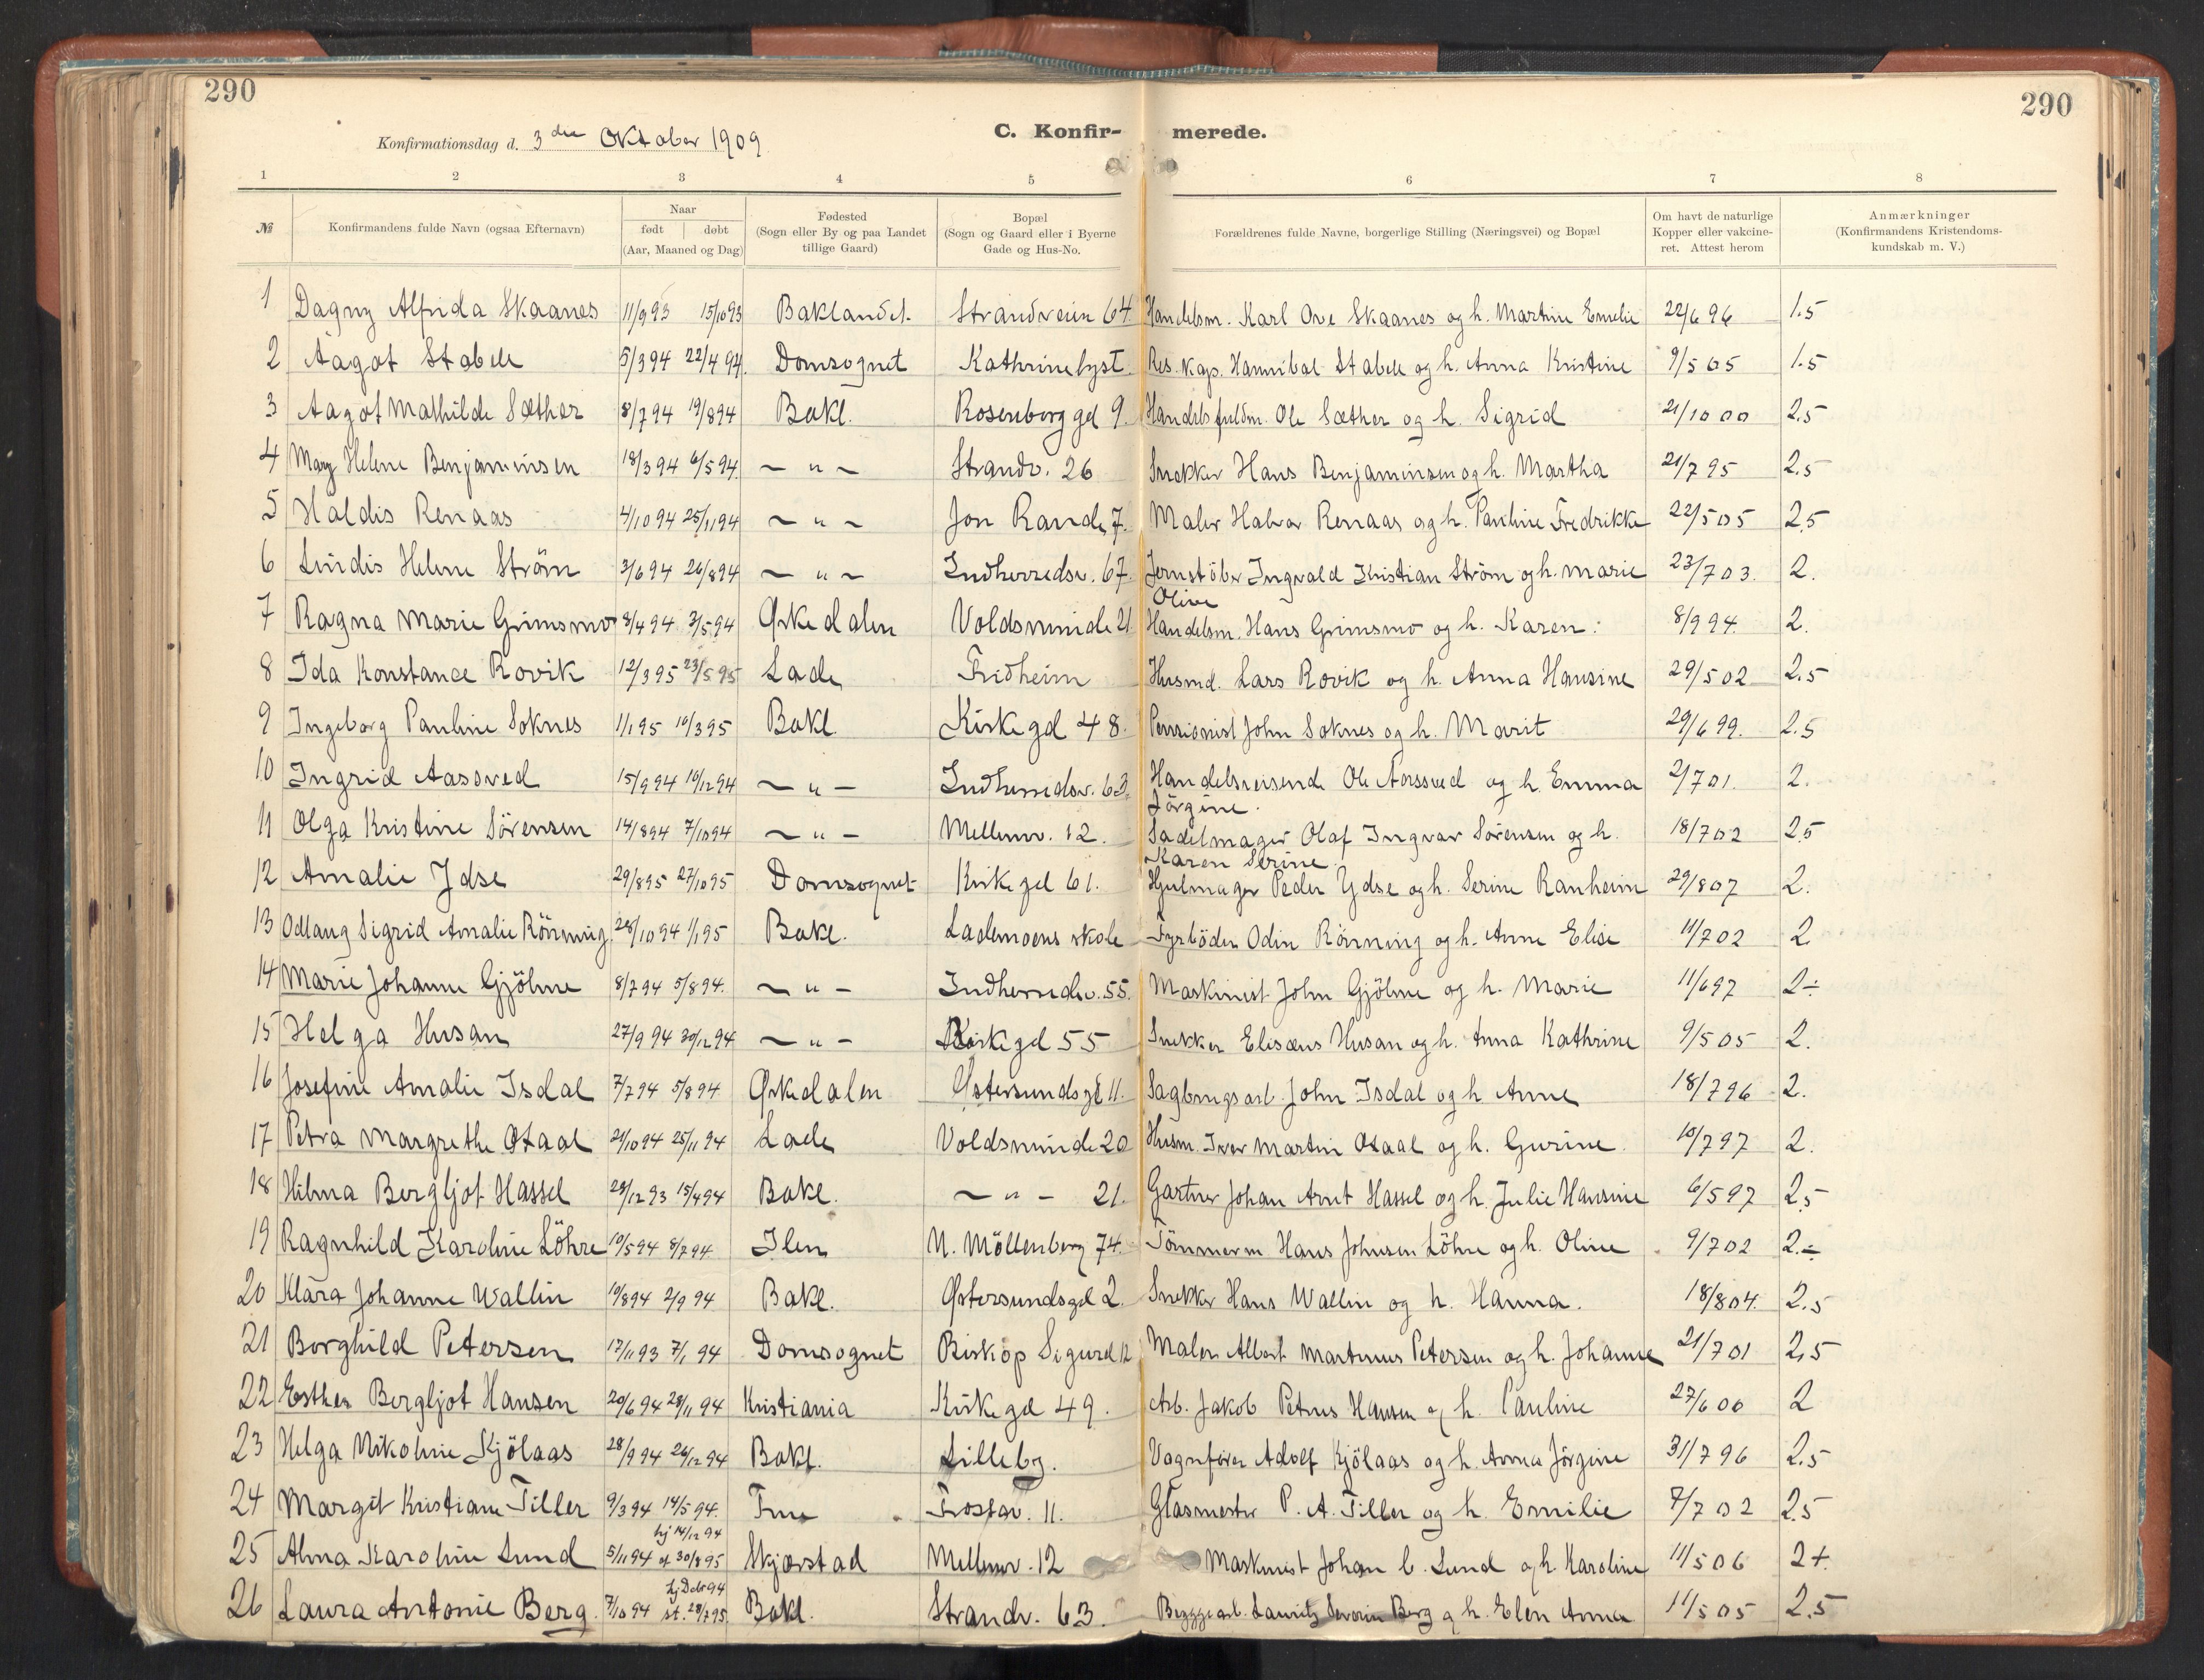 290
290
Konfirmationsdag d. 3die Oktober 1909
C. Konfir- merede.
1 2 3 4 5 6 7 8
№ Konfirmandens fulde Navn (ogsaa Efternavn) Naar født døbt (Aar, Maaned og Dag) Fødested (Sogn eller By og paa Landet tillige Gaard) Bopæl (Sogn og Gaard eller i Byerne Gade og Hus-No. Forældrenes fulde Navne, borgerlige Stilling (Næringsvei) og Bopæl Om havt de naturlige Kopper eller vakcineret. Attest herom Anmærkninger (Konfirmandens Kristendomskundskab m. V.)
1 Dagny Alfrida Skaanes 11/9 93 15/10 93 Baklandet. Strandveien 64 Handelsm. Karl Ove Skaanes og h. Martine Emelie 22/6 96 1.5
2 Aagot Stabell 5/3 94 22/4 94. Domsognet Kathrinelyst. Res. Kap. Hannibal Stabell og h. Anna Kristine 9/5 05 1.5
3 Aagot Mathilde Sæther 8/7 94 19/8 94 Bakl. Rosenborg gd 9. Handelsfuldm. Ole Sæther og h. Sigrid 21/10 00 2.5
4 Mary Helene Benjaminsen 18/3 94 6/5 94. — " — Strandv. 26 Snekker Hans Benjaminsen og h. Martha 21/7 95 2.5
5 Haldis Renaas 4/10 94 25/11 94 — " — Jon Rande 7. Maler Halvor Renaas og h. Pauline Fredrikke 22/5 05 2.5
6 Lindis Helene Ström 3/6 94 26/8 94 — " — Indherredsv. 67. Jernstöber Ingvald Kristian Ström og h. Marie 23/7 03. 2.
Olive
7 Ragna Marie Grimsmo 8/4 94 3/5 94 Ørkedalen Voldsminde 21 Handelsm. Hans Grimsmo og h. Karen. 8/9 94. 2.
8 Ida Konstance Rovik 12/3 95 23/5 95 Lade Fridheim Husmd. Lars Rovik og h. Anna Hansine 29/5 02 2.5
9 Ingeborg Pauline Soknes 1/1 95 10/3 95 Bakl. Kirkegd 48. Pensionist John Soknes og h. Marit 29/6 99. 2.5
10 Ingrid Aassved 15/9 94 16/12 94 — " — Indherredsv. 63. Handelsreisende Ole Aassved og h. Emma 2/7 01. 2.
Jörgine.
11 Olga Kristine Sörensen 14/8 94 7/10 94 — " — Mellemv. 12. Sadelmager Olaf Ingvar Sörensen og h. 18/7 02 2.5
Karen Serine.
12 Amalie Ydse 29/8 95 27/10 95 Domsognet Kirkegd 61. Hjulmager Peder Ydse og h. Serine Ranheim 29/8 07 2.
13 Odlaug Sigrid Amalie Rönning 28/10 94 1/1 95 Bakl. Lademoens skole Fyrböder Odin Rönning og h. Anne Elise 11/7 02 2
14 Marie Johanne Gjölme 8/7 94 5/8 94. — " — Indherredsv. 55. Maskinist John Gjölme og h. Marie 11/6 97 2÷
15 Helga Husan 27/9 94 30/12 94 — " — Kirkegd 55 Snekker Elisæus Husan og h. Anna Kathrine 9/5 05 2.
16 Josefine Amalie Isdal 7/7 94 5/8 94 Ørkedalen Østersundsgd 11. Sagbrugsarb. John Isdal og h. Anne 18/7 96 2.
17 Petra Margrethe Staal 21/10 94 25/11 94 Lade Voldsminde 20 Husm. Iver Martin Staal og h. Gurine. 10/7 97 2.
18 Hilma Bergljot Hassel 28/12 93 15/4 94 Bakl. — " — 21. Gartner Johan Arnt Hassel og h. Julie Hansine 6/5 97 2.5
19 Ragnhild Karoline Löhre 10/5 94 8/7 94 Ilen N. Möllenberg 74. Tömmerm Hans Johnsen Löhre og h. Oline 9/7 02 2.÷
20 Klara Johanne Wallin 10/8 94 2/9 94 Bakl. Østersundsgd 2. Snekker Hans Wallin og h. Hanna. 18/8 04. 2.5
21 Borghild Petersen 17/11 93 7/1 94 Domsognet Biskop Sigurd 12 Maler Albert Martinus Petersen og h. Johanne 21/7 01 2.5
22 Esther Bergljot Hansen 20/6 94 28/11 94 Kristiania Kirkegd 49. Arb. Jakob Petrus Hansen og h. Pauline 27/6 00 2
23 Helga Nikoline Kjölaas 28/9 94 26/12 94 Bakl. Lilleby. Vognfører Adolf Kjölaas og h. Anna Jörgine 31/7 96 2.5
24 Margit Kristiane Tiller 9/3 94 14/5 94. Frue Frostav. 11. Glasmester P. A. Tiller og h. Emilie 7/7 02 2.5
25 Alma Karoline Lund 5/11 94 hj 14/12 94 st 30/8 95 Skjerstad Mellemv. 12 Maskinist Johan C. Lund og h. Karoline 11/5 06 2+.
26 Laura Antonie Berg. 7/10 94 hj Debr 94 st. 28/7 95. Bakl. Strandv. 63. Byggearb. Lauritz Severin Berg og h. Elen Anna 11/5 05 2.5